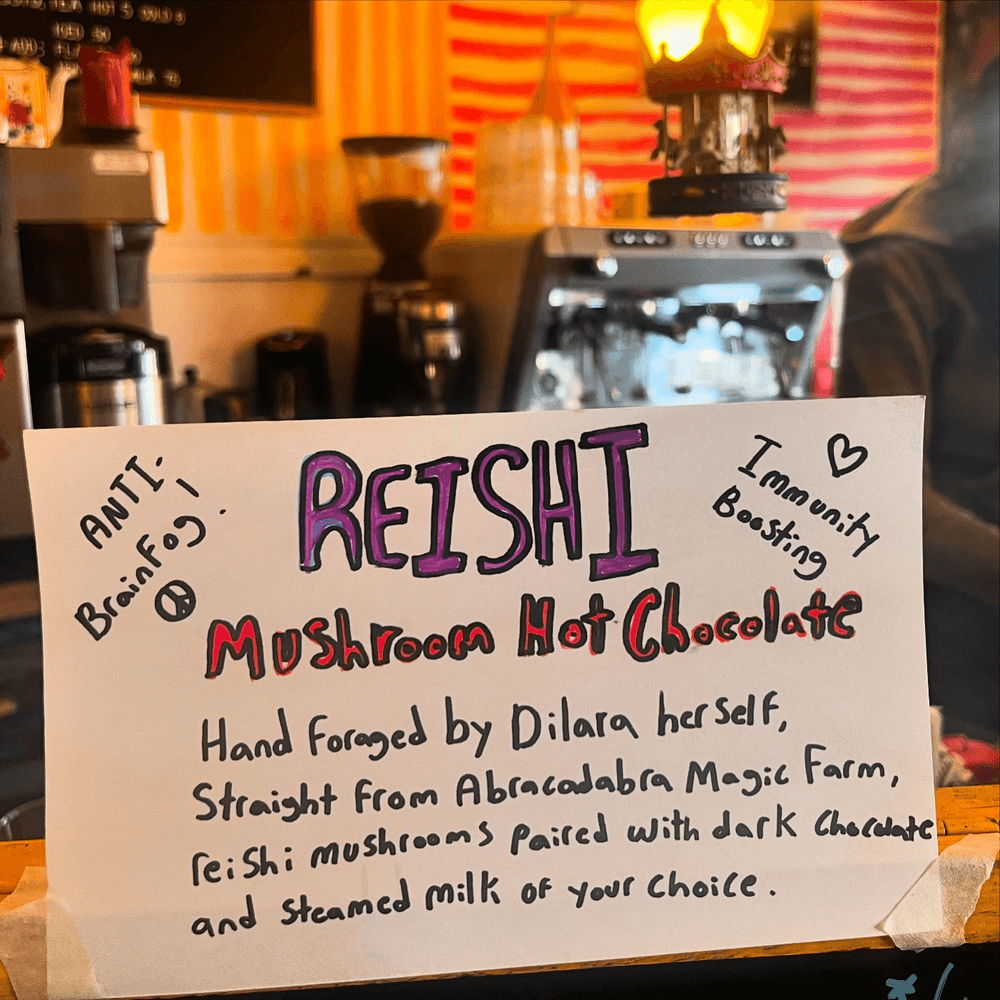 ANTI-
BrainFog!
REISHI
Immunity
Boosting
Mushroom Hot Chocolate
Hand Foraged by Dilara herself,
Straight from Abracadabra Magic Farm,
reishi mushrooms paired with dark chocolate
and steamed milk of your choice.